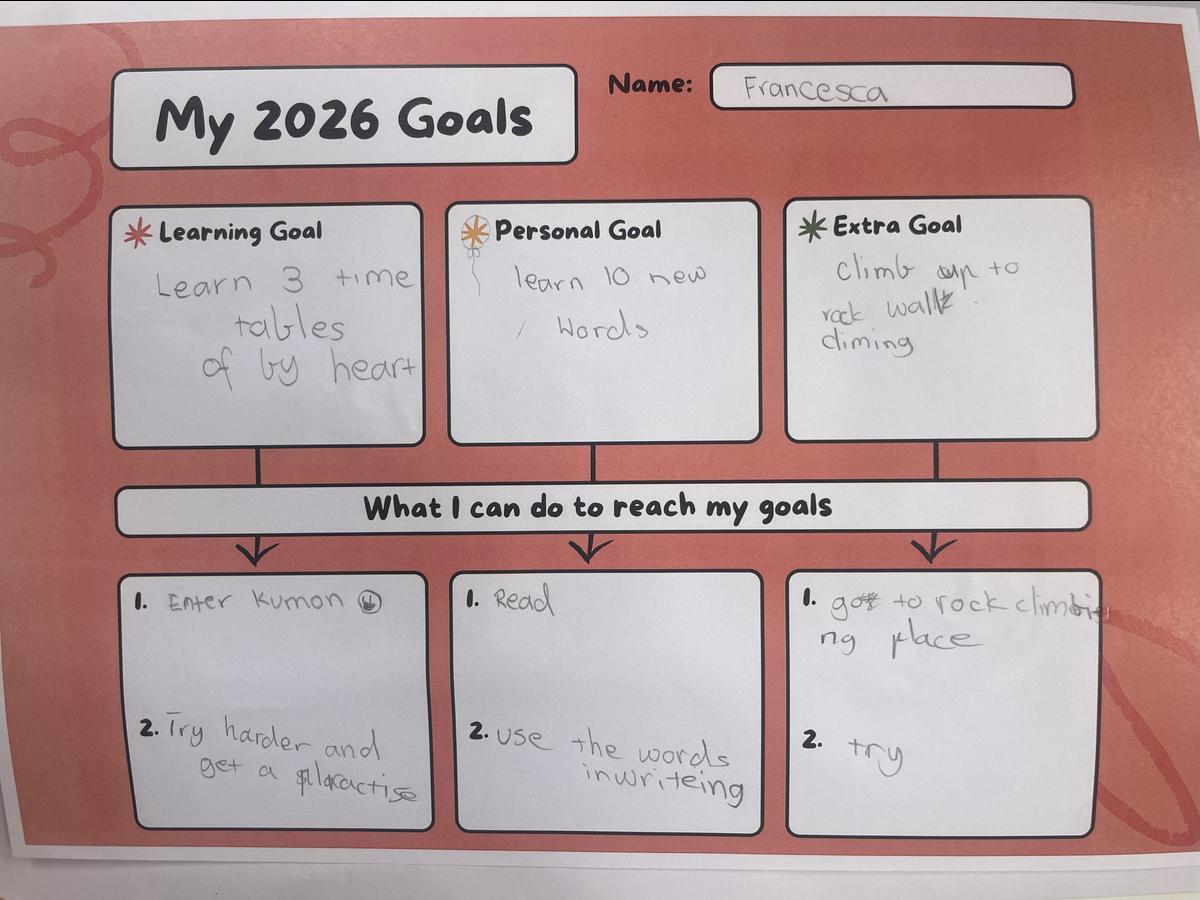 My 2026 Goals
Name: Francesca
Learning Goal
Learn 3 time
tables
of by heart
Personal Goal
learn 10 new
words
Extra Goal
climb up to
rock wall
climing
What I can do to reach my goals
1. Enter Kumon
2. Try harder and
get a practise
1. Read
2. use the words
in writeing
1. go to rock climbi
ng place
2. try